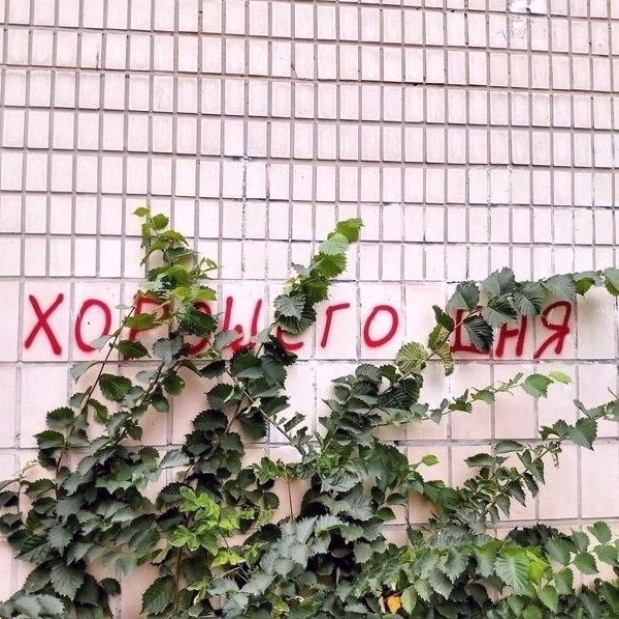 хорошего дня